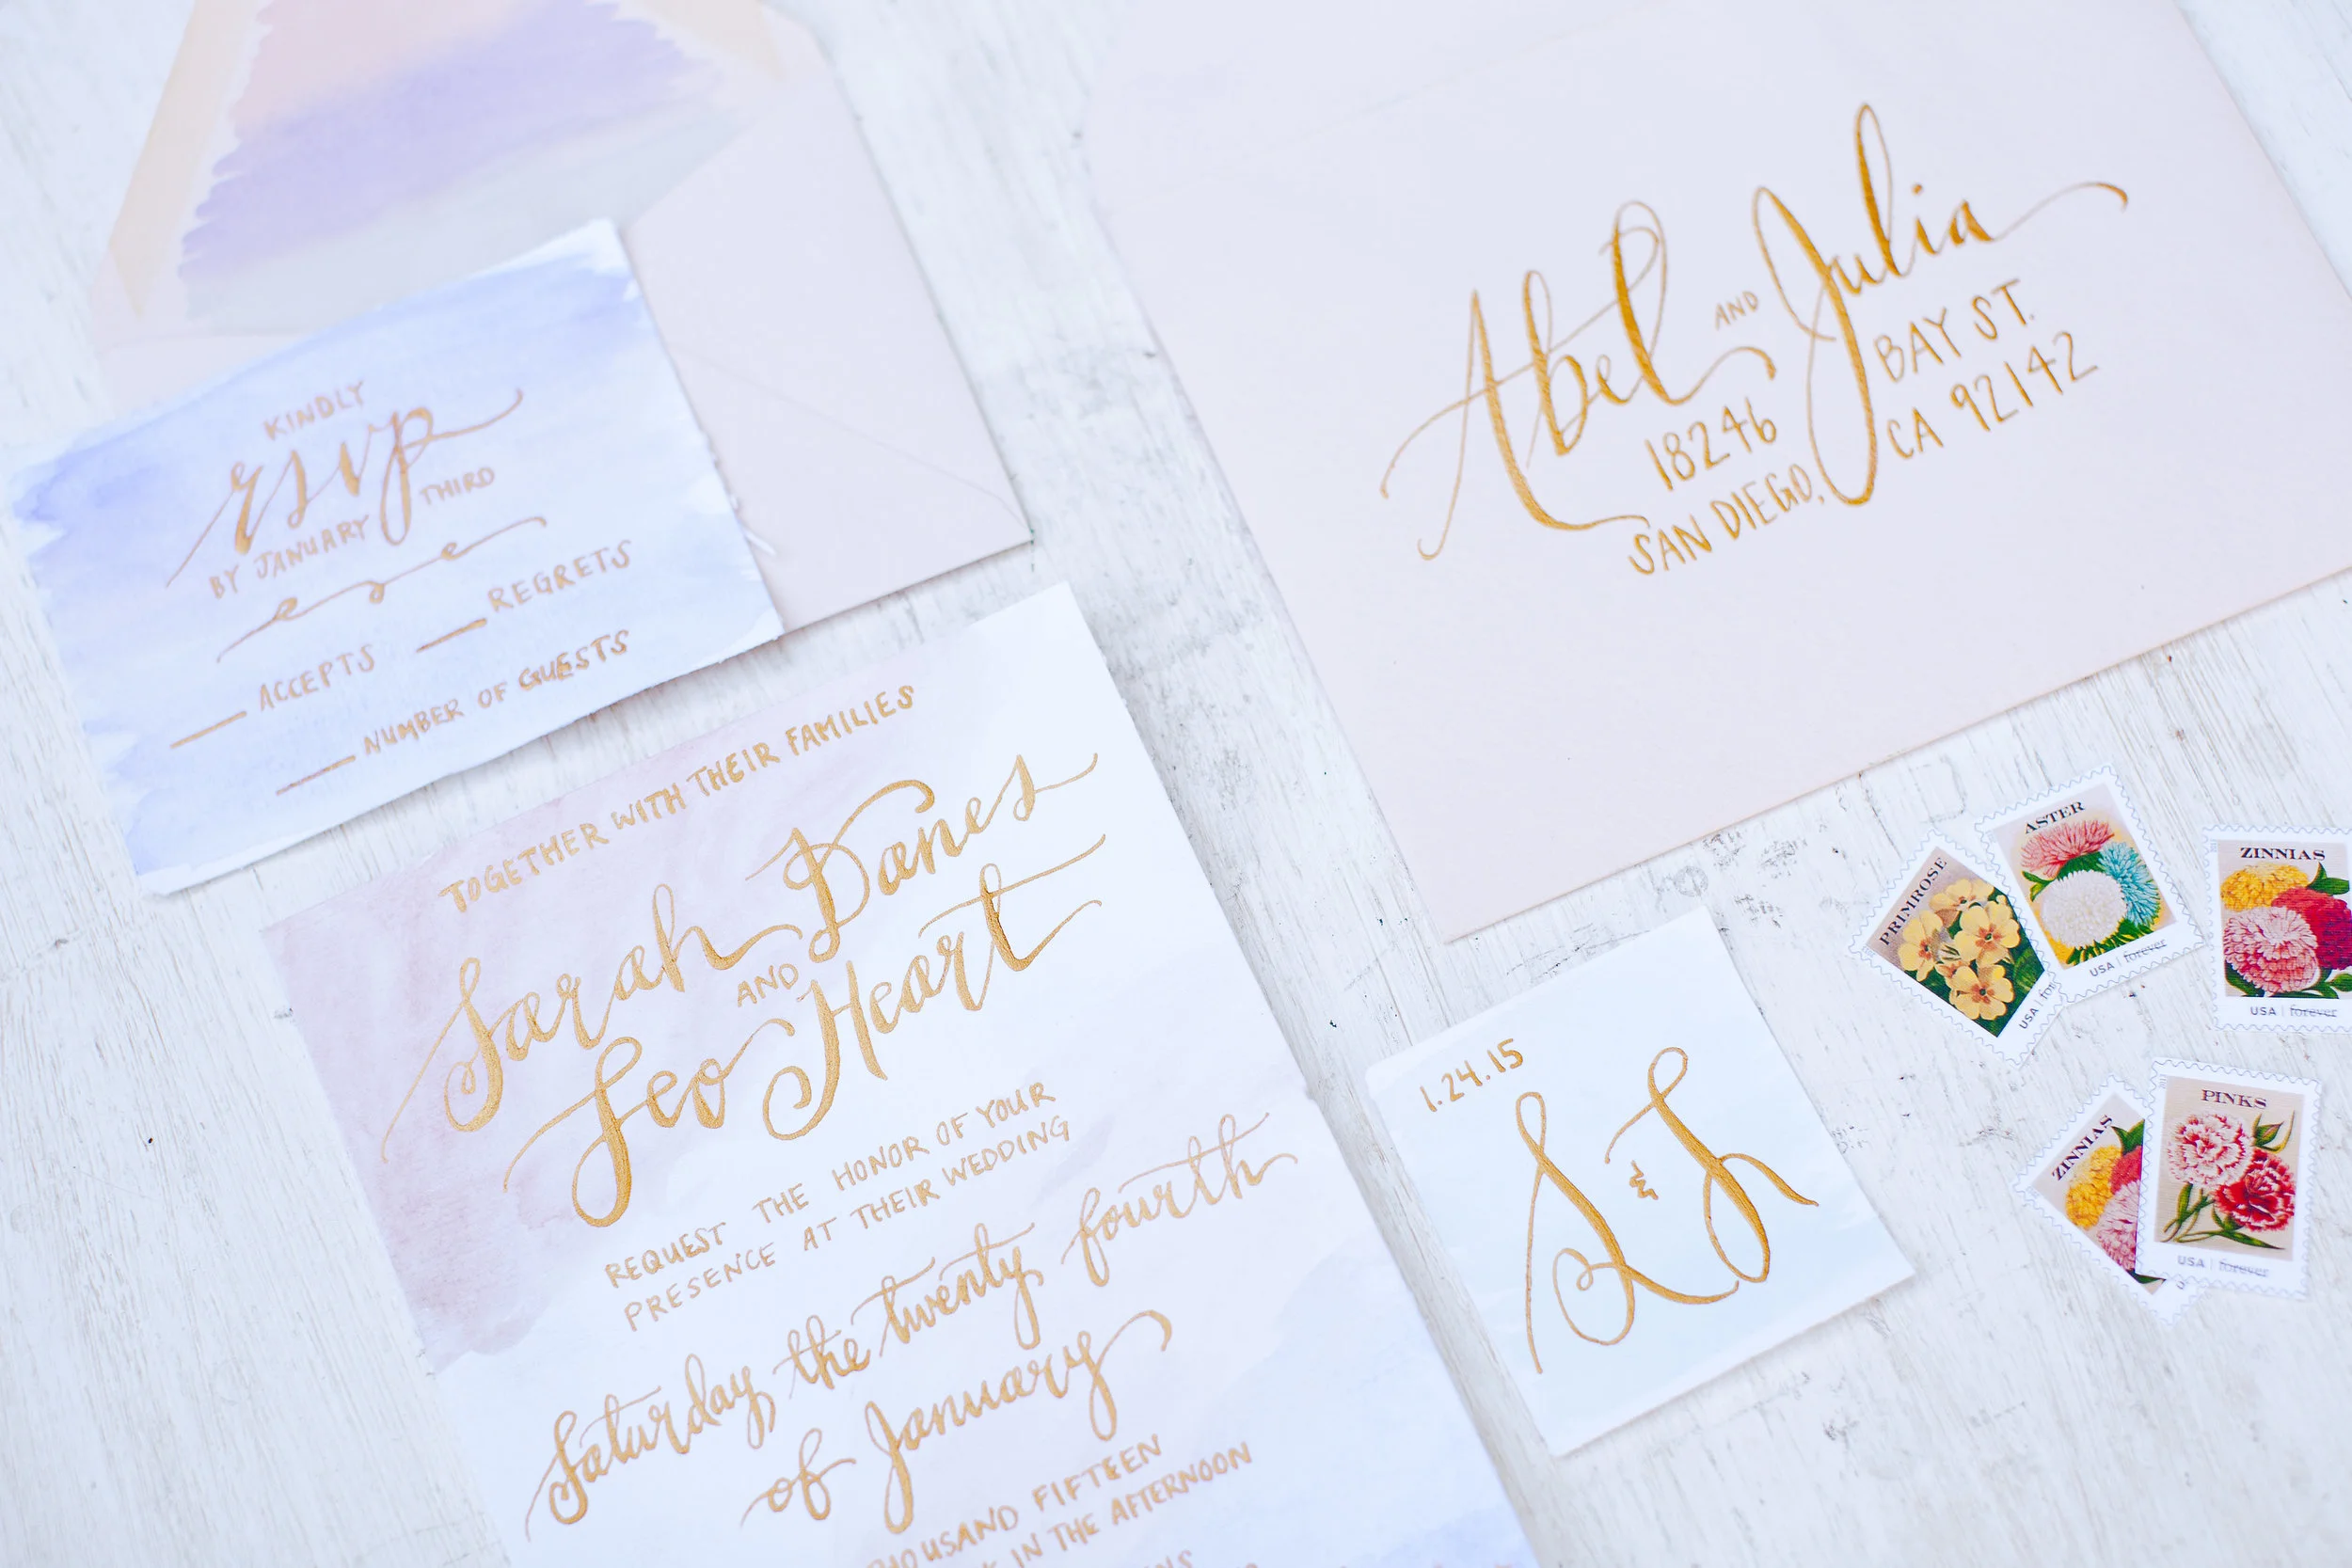 KINDLY
rsvp
BY JANUARY THIRD
ACCEPTS
REGRETS
NUMBER OF GUESTS
TOGETHER WITH THEIR FAMILIES
Sarah Danes
AND
Leo Heart
REQUEST THE HONOR OF YOUR
PRESENCE AT THEIR WEDDING
Saturday, the twenty fourth
of January
FIFTEEN
IN THE AFTERNOON
Abel AND Julia
18246 BAY ST.
SAN DIEGO, CA 92142
1.24.15
S & L
PRIMROSE
USA
ASTER
USA forever
ZINNIAS
USA forever
ZINNIAS
PINKS
USA forever